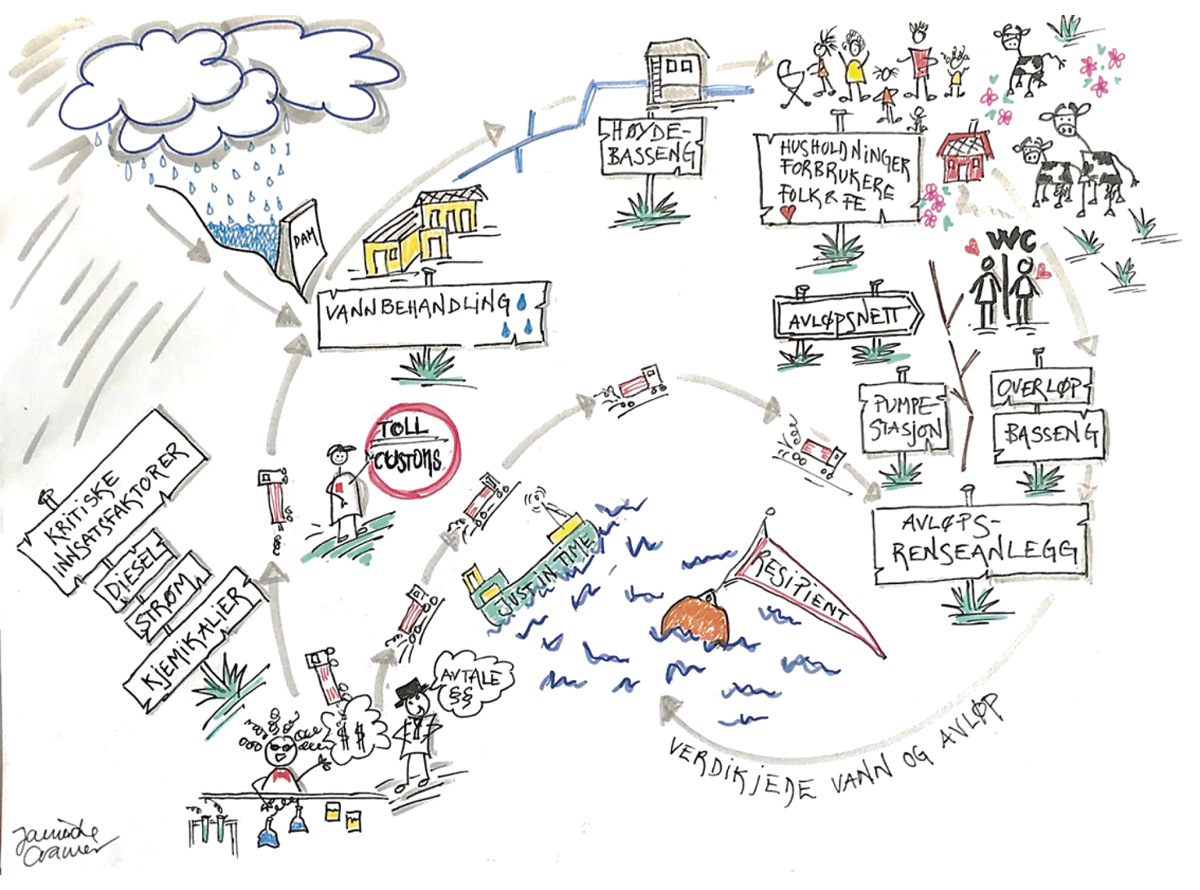 DAM
VANNBEHANDLING
HØYDE-
BASSENG
HUSHOLDNINGER
FORBRUKERE
FOLK & FE
WC
AVLØPSNETT
PUMPE-
STASJON
OVERLØP
BASSENG
AVLØPS-
RENSEANLEGG
TOLL
CUSTOMS
KRITISKE
INNSATSFAKTORER
DIESEL
STRØM
KJEMIKALIER
JUST IN TIME
RESIPIENT
AVTALE
§§
$$
VERDIKJEDE VANN OG AVLØP
Cramer